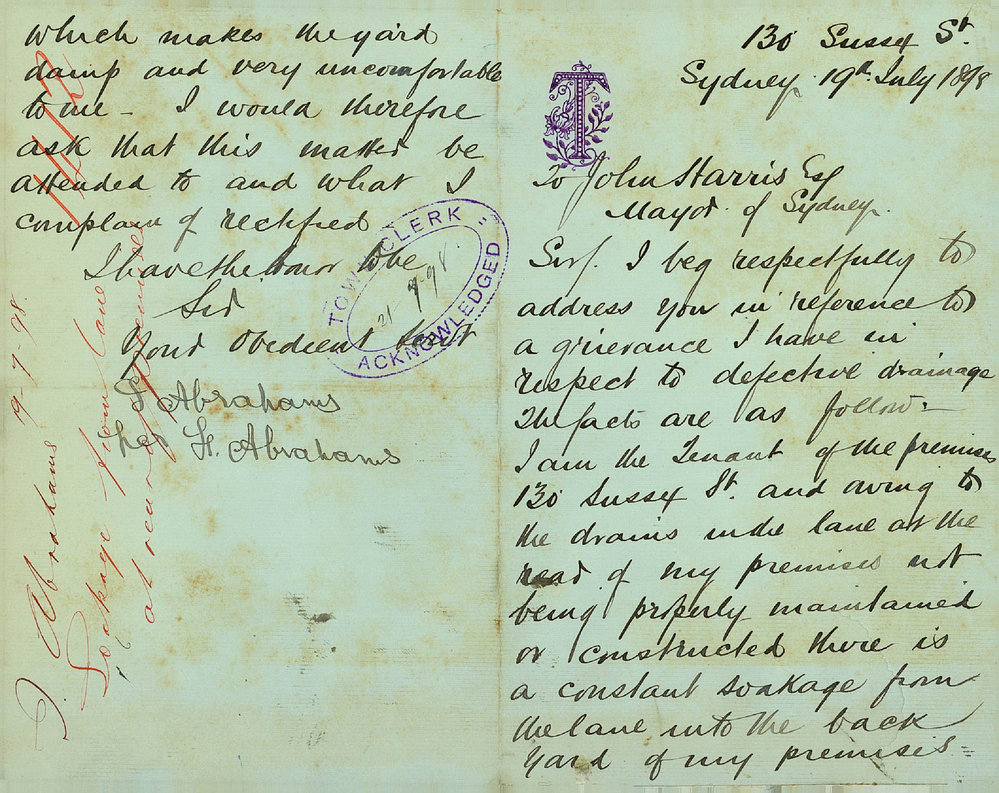 130 Sussex St.
Sydney 19th July 1898
T
To John Harris Esq
Mayor of Sydney.
Sir/. I beg respectfully to
address you in reference to
a grievance I have in
respect to defective drainage
The facts are as follow:-
I am the Tenant of the premises
130 Sussex St. and owing to
the drains in the lane at the
rear of my premises not
being properly maintained
or constructed there is
a constant soakage from
the lane into the back
yard of my premises
which makes the yard
damp and very uncomfortable
to me - I would therefore
ask that this matter be
attended to and what I
complain of rectified
I have the honor to be
Sir
Your Obedient Servt
J. Abrahams
per H. Abrahams
TOWN CLERK
21 7 98.
ACKNOWLEDGED
J. Abrahams 19-7-98.
Soakage from lane
at rear of premises